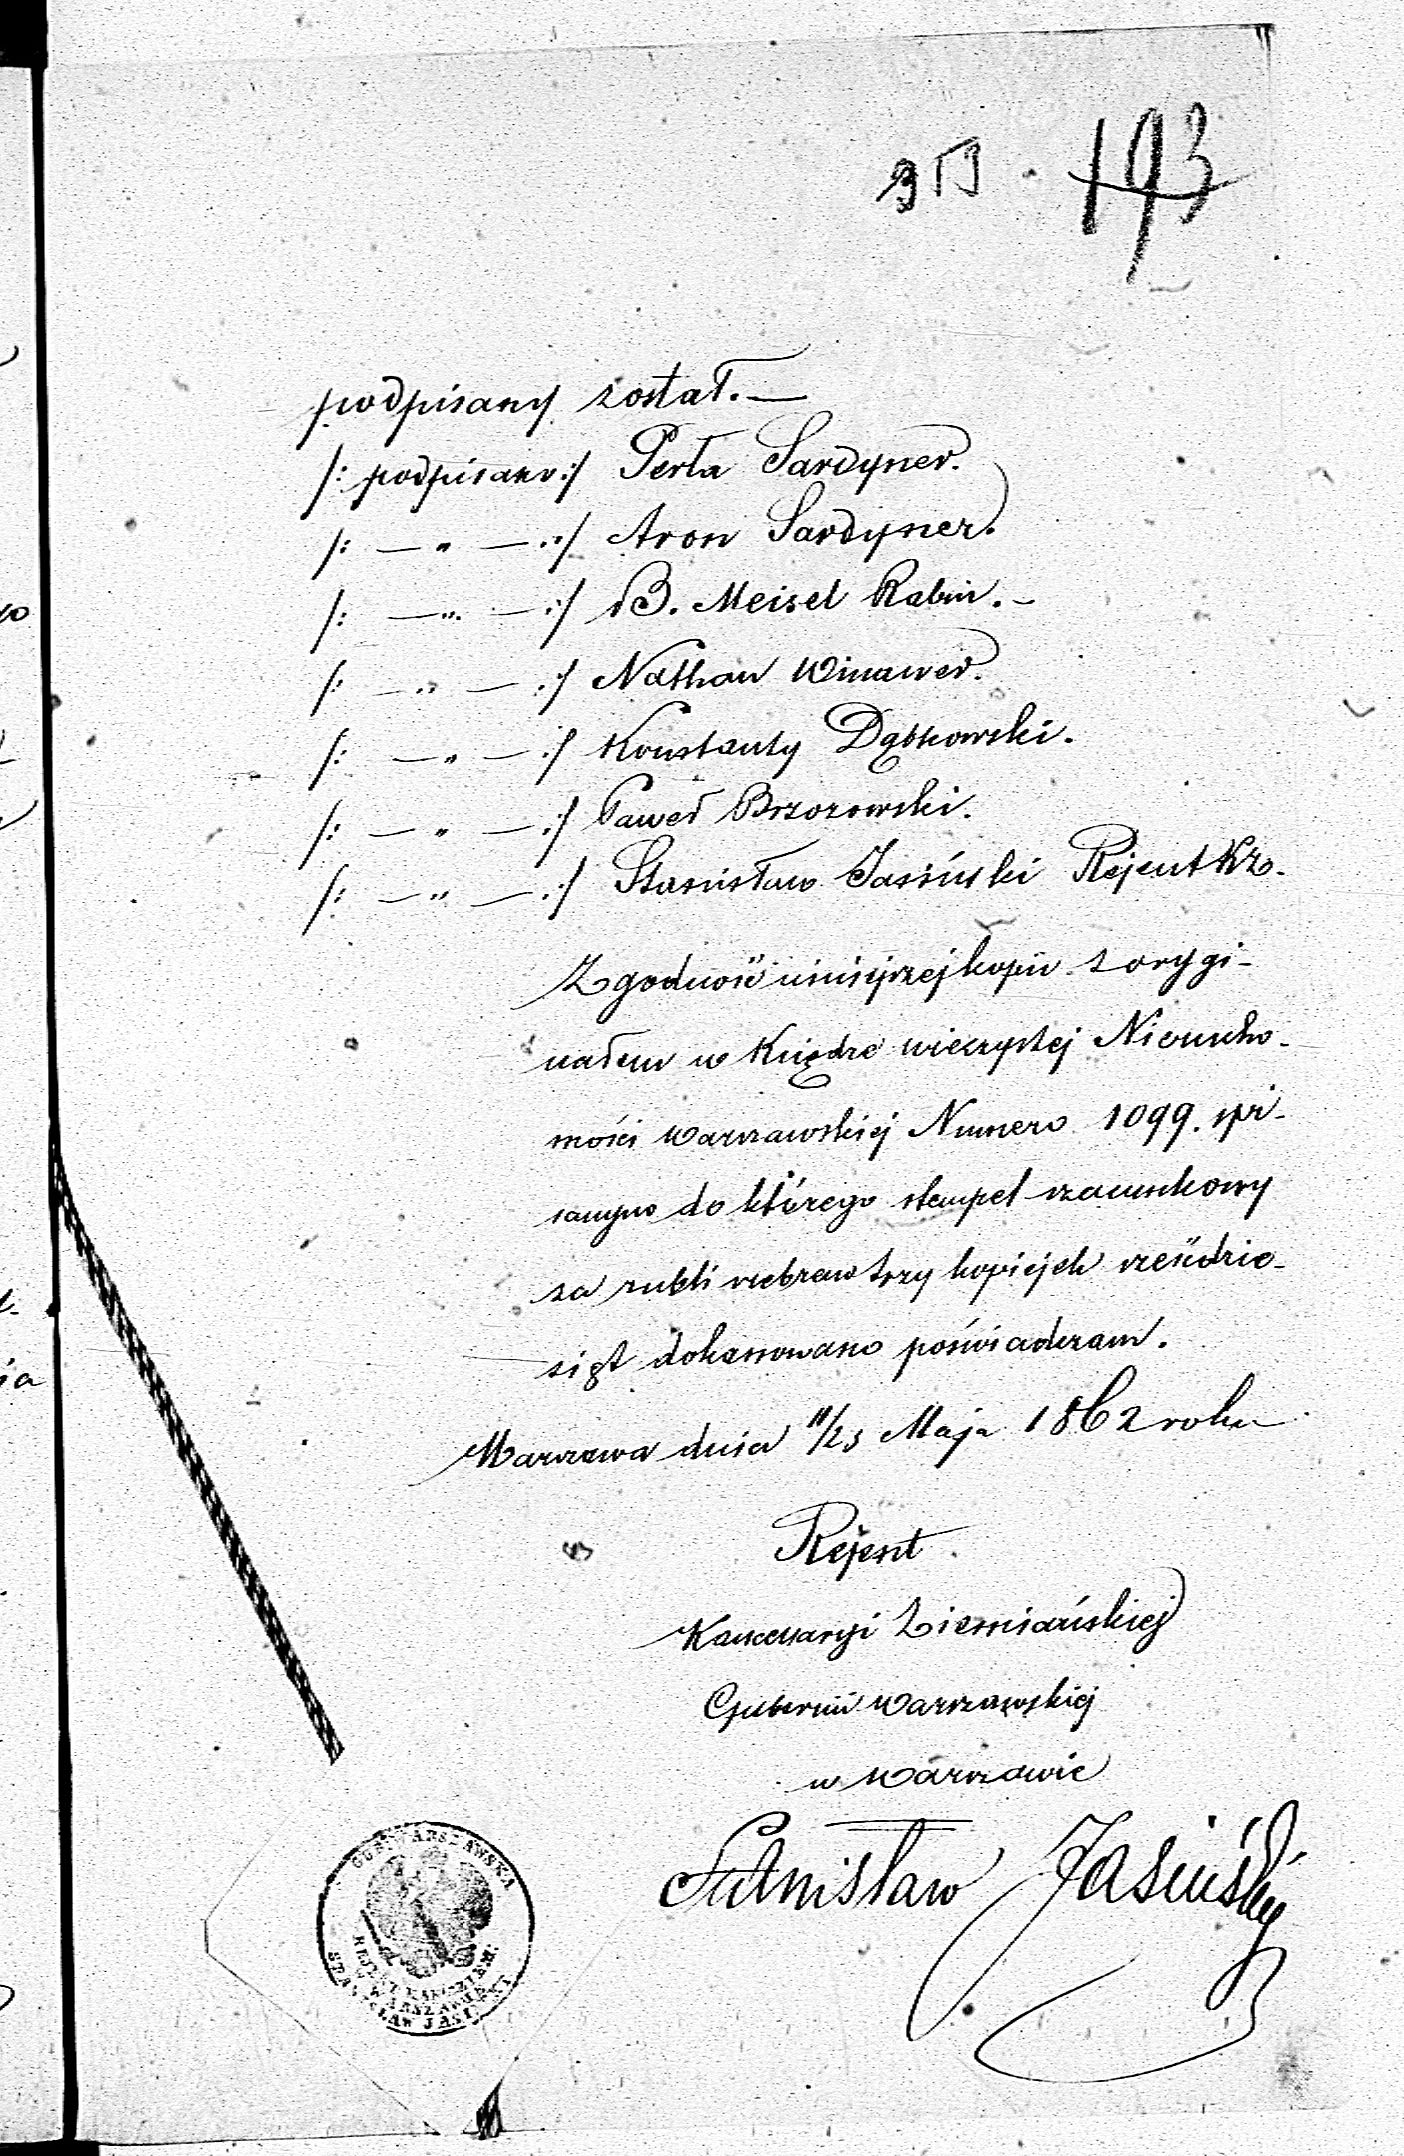 193
podpisany został. —
/: podpisano :/ Perla Sardyner.
/: — " — :/ Aron Sardyner.
/: — " — :/ B. Meisel Rabin. –
/: — " — :/ Nathan Winawer.
/: — " — :/ Konstanty Dąbkowski.
/: — " — :/ Paweł Brzozowski.
/: — " — :/ Stanisław Jasiński Rejent Kzo.
Zgodność niniejszej kopii z orygi-
nałem w Księdze wieczystej Nierucho-
mości Warszawskiej Numero 1099. spi-
sanym do którego stempel szacunkowy
za rubli srebrem trzy kopiejek sześćdzie-
siąt dokassowano poświadczam.
Warszawa dnia 11/23 Maja 1862 roku
Rejent
Kancellaryi Ziemiańskiej
Gubernii Warszawskiej
w Warszawie
Stanisław Jasiński
GUB. WARSZAWSKA
REJENT KANC. ZIEM.
W WARSZAWIE
STANISŁAW JASIŃSKI